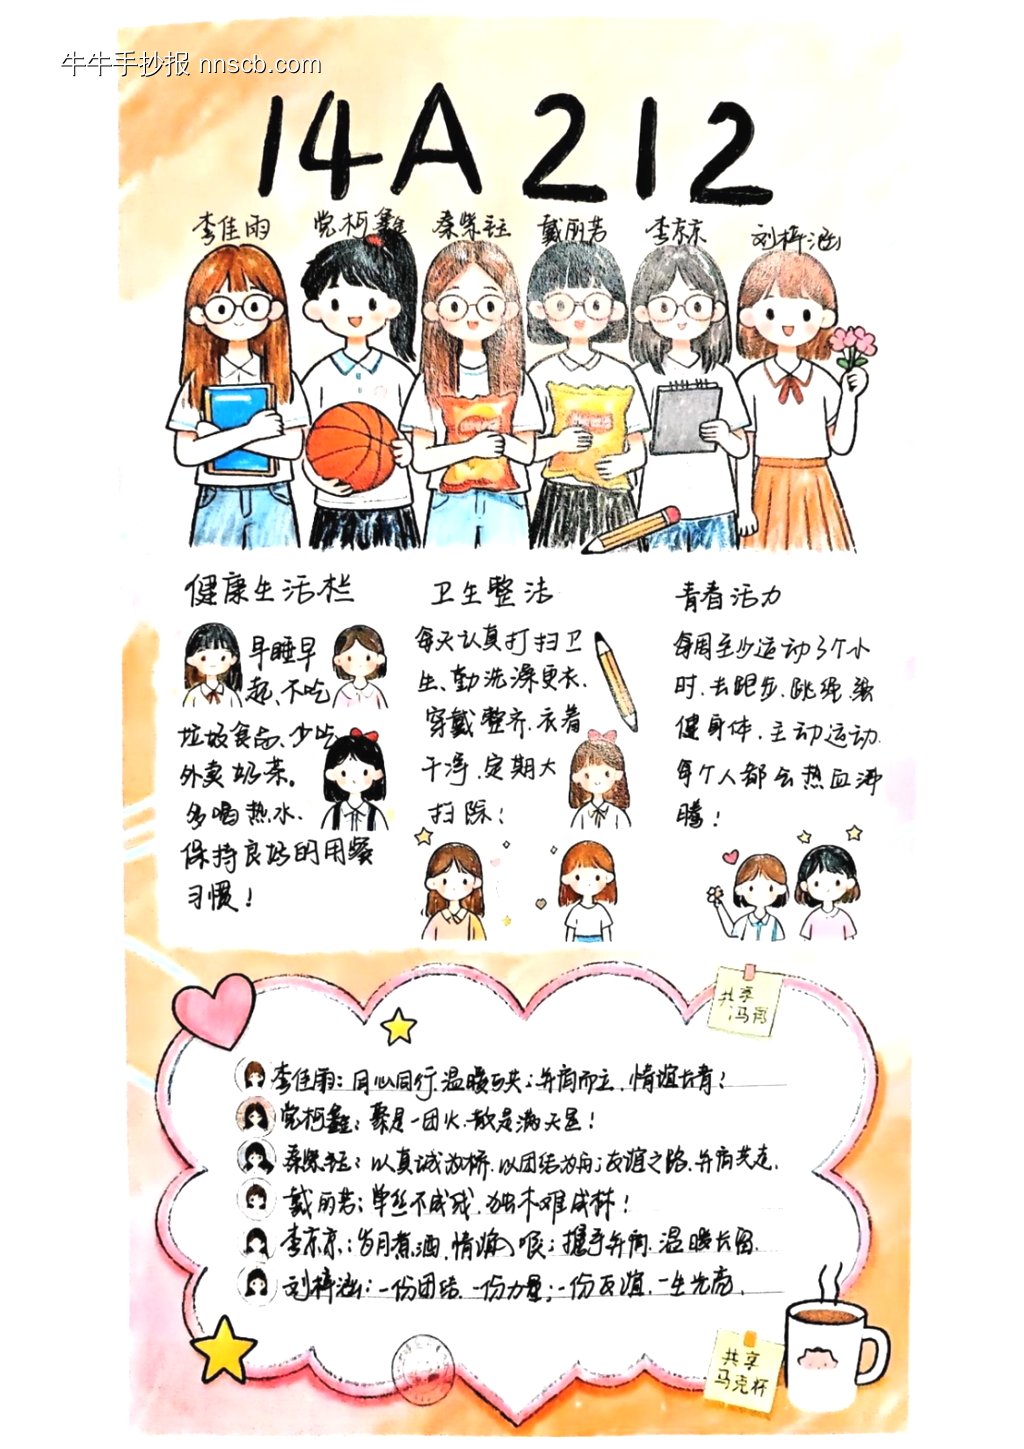 牛牛手抄报 nnscb.com
14A212
李佳雨 党柯鑫 桑紫钰 戴丽若 李京京 刘梓涵
健康生活栏
早睡早
起、不吃
垃圾食品、少吃
外卖奶茶。
多喝热水、
保持良好的用餐
习惯！
卫生整洁
每天认真打扫卫
生、勤洗澡更衣、
穿戴整齐、衣着
干净、定期大
扫除！
青春活力
每周至少运动3个小
时、去跑步、跳绳、强
健身体、主动运动、
每个人都会热血沸
腾！
共享
李佳雨：同心同行，温暖与共；并肩而立，情谊长青！
党柯鑫：聚是一团火，散是满天星！
桑紫钰：以真诚为桥，以团结为舟；友谊之路，并肩共走。
戴丽若：单丝不成线，独木难成林！
李京京：岁月煮酒，情谊入喉；携手并肩，温暖长留。
刘梓涵：一份团结，一份力量；一份友谊，一生光亮。
共享
马克杯